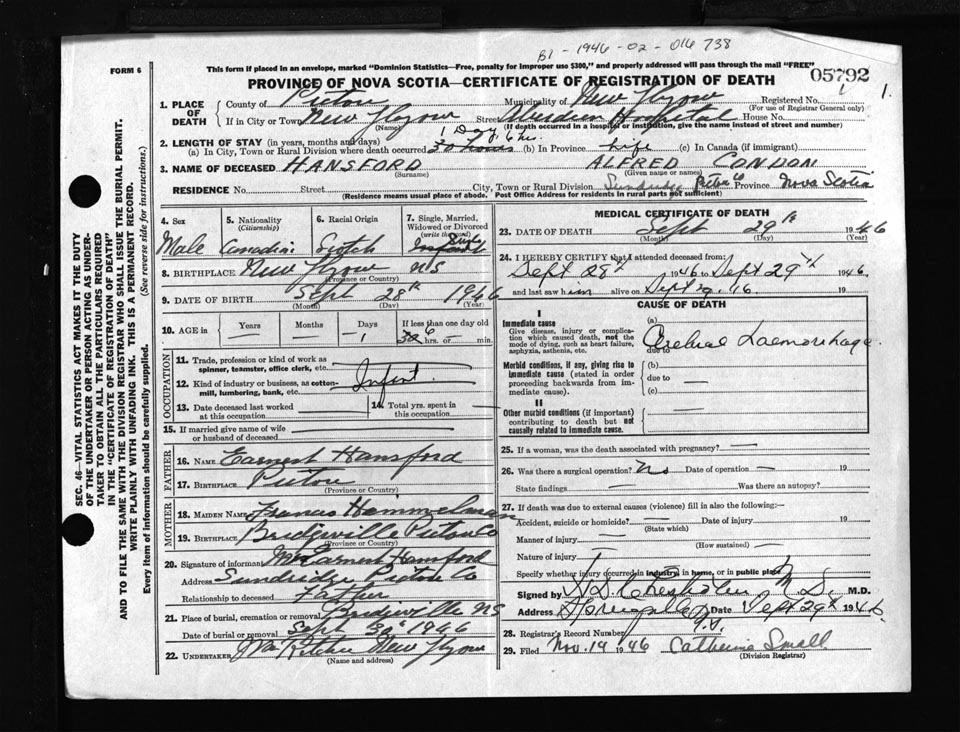 B1 - 1946 - 02 - 016 738
FORM 6
This form if placed in an envelope, marked "Dominion Statistics—Free, penalty for improper use $300," and properly addressed will pass through the mail "FREE"
PROVINCE OF NOVA SCOTIA—CERTIFICATE OF REGISTRATION OF DEATH
05792
1. PLACE OF DEATH
County of Pictou Municipality of New Glasgow Registered No. 1 1.
(For use of Registrar General only)
If in City or Town New Glasgow (Name) Street Aberdeen Hospital House No.
(If death occurred in a hospital or institution, give the name instead of street and number)
2. LENGTH OF STAY (in years, months and days) 1 Day 6 hr.
(a) In City, Town or Rural Division where death occurred 30 hours (b) In Province Life (c) In Canada (if immigrant)
3. NAME OF DECEASED HANSFORD ALFRED CONDON
(Surname) (Given name or names)
RESIDENCE No. Street City, Town or Rural Division Sundridge Pictou Co Province Nova Scotia
(Residence means usual place of abode. Post Office Address for residents in rural parts not sufficient)
4. Sex Male
5. Nationality (Citizenship) Canadian
6. Racial Origin Scotch
7. Single, Married, Widowed or Divorced (write the word) Single Infant
8. BIRTHPLACE New Glasgow NS
(Province or Country)
9. DATE OF BIRTH Sept 28th 1946
(Month) (Day) (Year)
10. AGE in Years — Months — Days 1 If less than one day old 6 30 hrs. or min.
OCCUPATION
11. Trade, profession or kind of work as spinner, teamster, office clerk, etc.
12. Kind of industry or business, as cotton-mill, lumbering, bank, etc. Infant
13. Date deceased last worked at this occupation
14. Total yrs. spent in this occupation
15. If married give name of wife or husband of deceased
FATHER
16. NAME Earnest Hansford
17. BIRTHPLACE Pictou
(Province or Country)
MOTHER
18. MAIDEN NAME Francis Hammelman
19. BIRTHPLACE Bridgeville Pictou Co
(Province or Country)
20. Signature of informant Mr Earnest Hansford
Address Sundridge Pictou Co
Relationship to deceased Father
21. Place of burial, cremation or removal Bridgeville NS
Date of burial or removal Sept 30th 1946
22. UNDERTAKER Ritchie New Glasgow
(Name and address)
MEDICAL CERTIFICATE OF DEATH
23. DATE OF DEATH Sept 29th 1946
(Month) (Day) (Year)
24. I HEREBY CERTIFY that I attended deceased from:
Sept 28th 1946 to Sept 29th 1946
and last saw him alive on Sept 29. 46 19
CAUSE OF DEATH
I
Immediate cause
Give disease, injury or complication which caused death, not the mode of dying, such as heart failure, asphyxia, asthenia, etc.
(a) Cerebral Haemorrhage
due to
Morbid conditions, if any, giving rise to immediate cause (stated in order proceeding backwards from immediate cause).
(b)
due to —
(c)
II
Other morbid conditions (if important) contributing to death but not causally related to immediate cause.
25. If a woman, was the death associated with pregnancy? —
26. Was there a surgical operation? No Date of operation — 19
State findings — Was there an autopsy?
27. If death was due to external causes (violence) fill in also the following:—
Accident, suicide or homicide? — Date of injury 19
(State which)
Manner of injury —
(How sustained) —
Nature of injury
Specify whether injury occurred in industry, in home, or in public place
Signed by M.D. M.D.
Address Date Sept 29th 1946
28. Registrar's Record Number
29. Filed Nov. 14 1946 Catherine Small
(Division Registrar)
SEC. 46—VITAL STATISTICS ACT MAKES IT THE DUTY
OF THE UNDERTAKER OR PERSON ACTING AS UNDER-
TAKER TO OBTAIN ALL THE PARTICULARS REQUIRED
IN THE "CERTIFICATE OF REGISTRATION OF DEATH"
AND TO FILE THE SAME WITH THE DIVISION REGISTRAR WHO SHALL ISSUE THE BURIAL PERMIT.
WRITE PLAINLY WITH UNFADING INK. THIS IS A PERMANENT RECORD.
Every item of information should be carefully supplied. (See reverse side for instructions.)